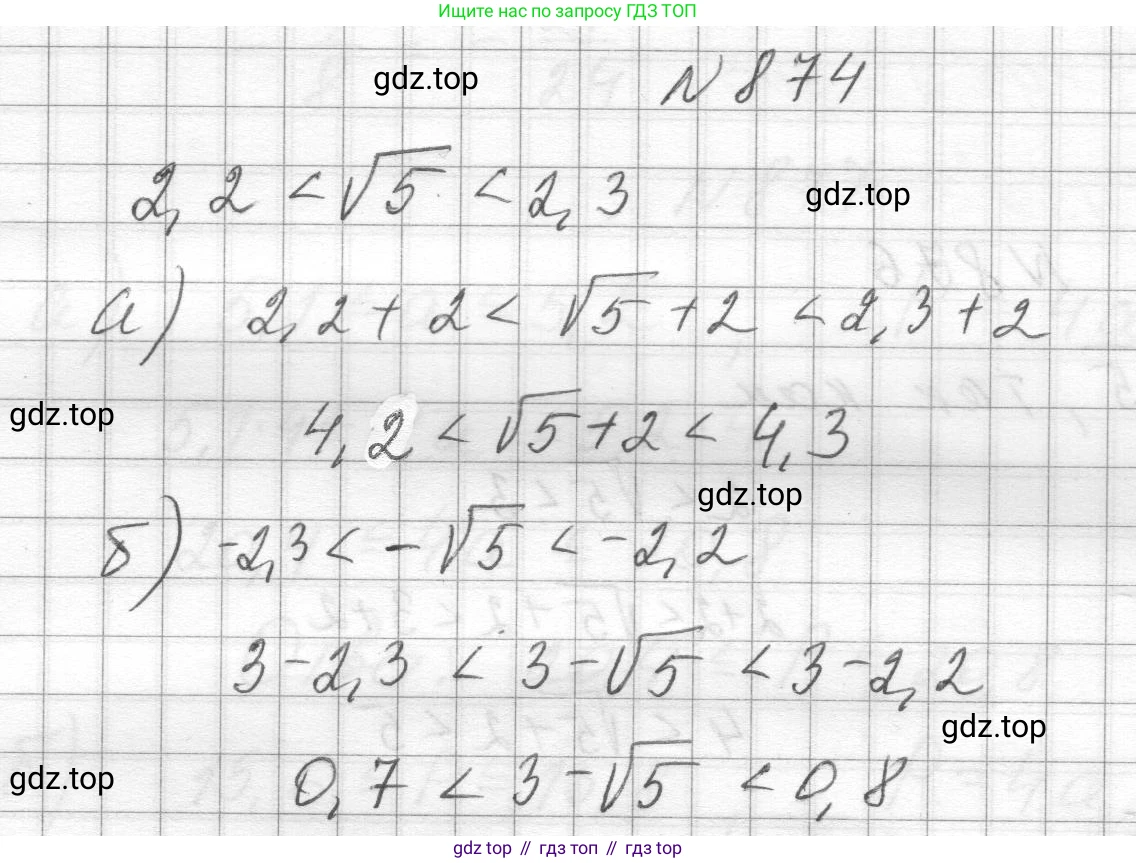 Ищите нас по запросу ГДЗ ТОП
gdz.top
N 874
2,2 < √5 < 2,3
gdz.top
а) 2,2 + 2 < √5 + 2 < 2,3 + 2
gdz.top
4,2 < √5 + 2 < 4,3
gdz.top
б) -2,3 < -√5 < -2,2
3 - 2,3 < 3 - √5 < 3 - 2,2
gdz.top
gdz.top
0,7 < 3 - √5 < 0,8
gdz.top // гдз топ // гдз.top